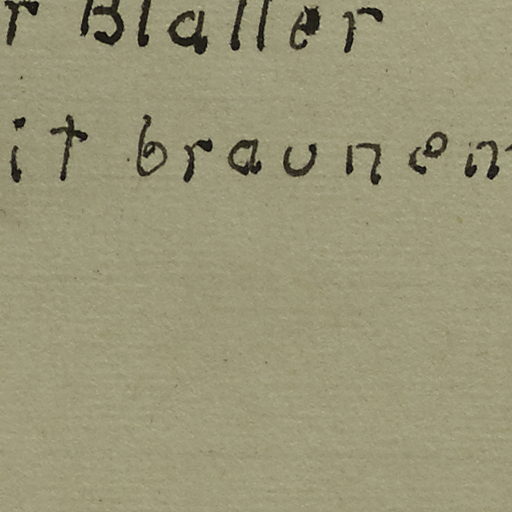 r Blaller
it braunem